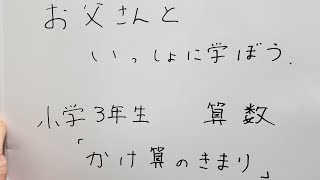 お父さんと
いっしょに学ぼう.
小学3年生 算数
「かけ算のきまり」